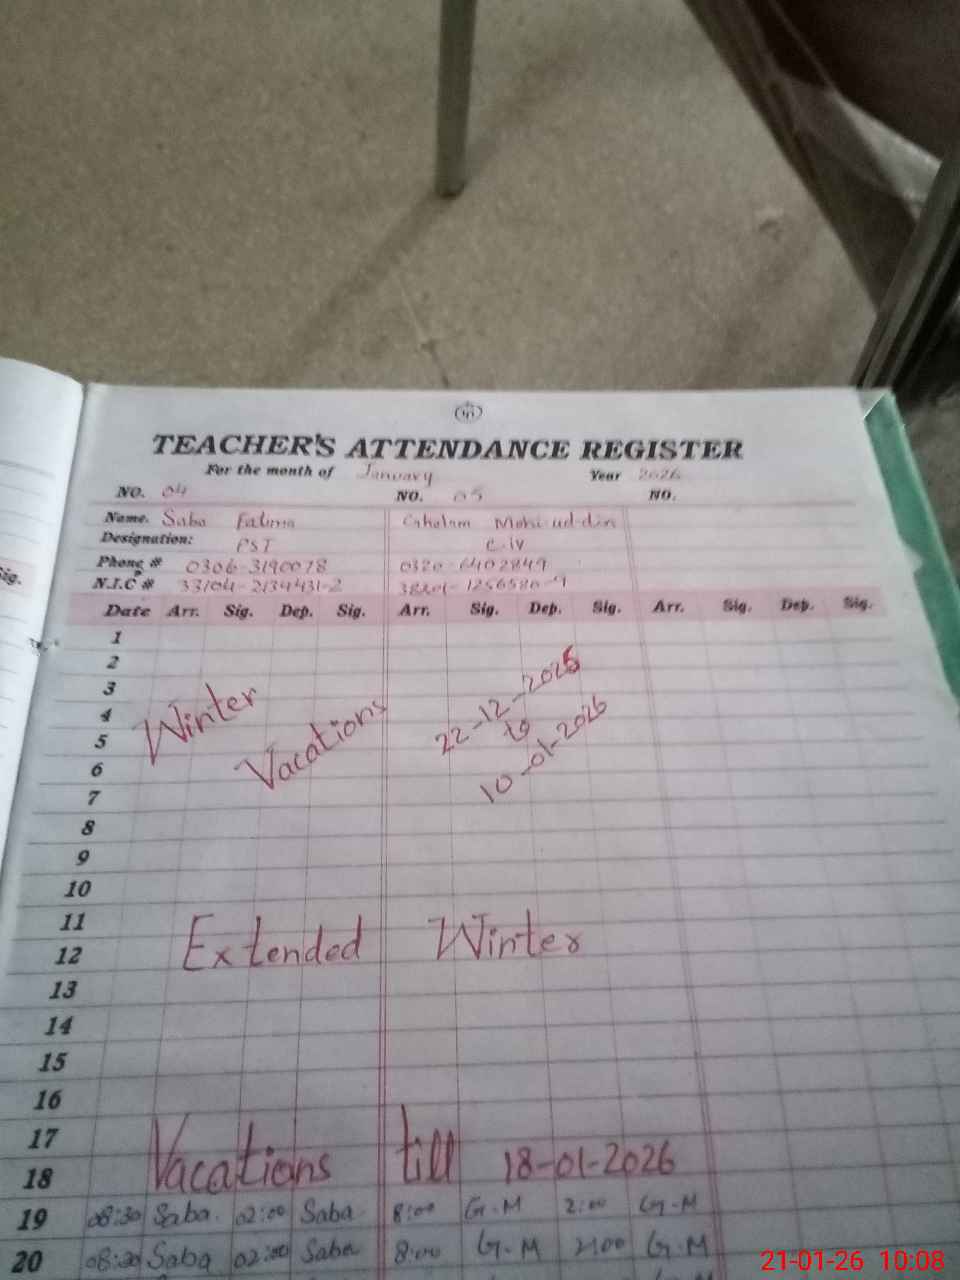 TEACHER'S ATTENDANCE REGISTER
For the month of January Year 2026
NO. 04 NO. 05 NO.
Name. Saba Fatima Gholam Mohi-ud-din
Designation: PST C-iv
Phone # 0306-3190078 0320-6402849
N.I.C # 33104-2134431-2
Date Arr. Sig. Dep. Sig. Arr. Sig. Dep. Sig. Arr. Sig. Dep. Sig.
1
2
3
4
5
6
7
8
9
10
Winter
Vacations
22-12-2025
to
10-01-2026
11
12
Extended Winter
13
14
15
16
17
18
Vacations till 18-01-2026
19 08:30 Saba. 02:00 Saba 8:00 G.M 2:00 G.M
20 08:30 Saba 02:00 Saba 8:00 G.M 2:00 G.M
Sig.
21-01-26 10:08